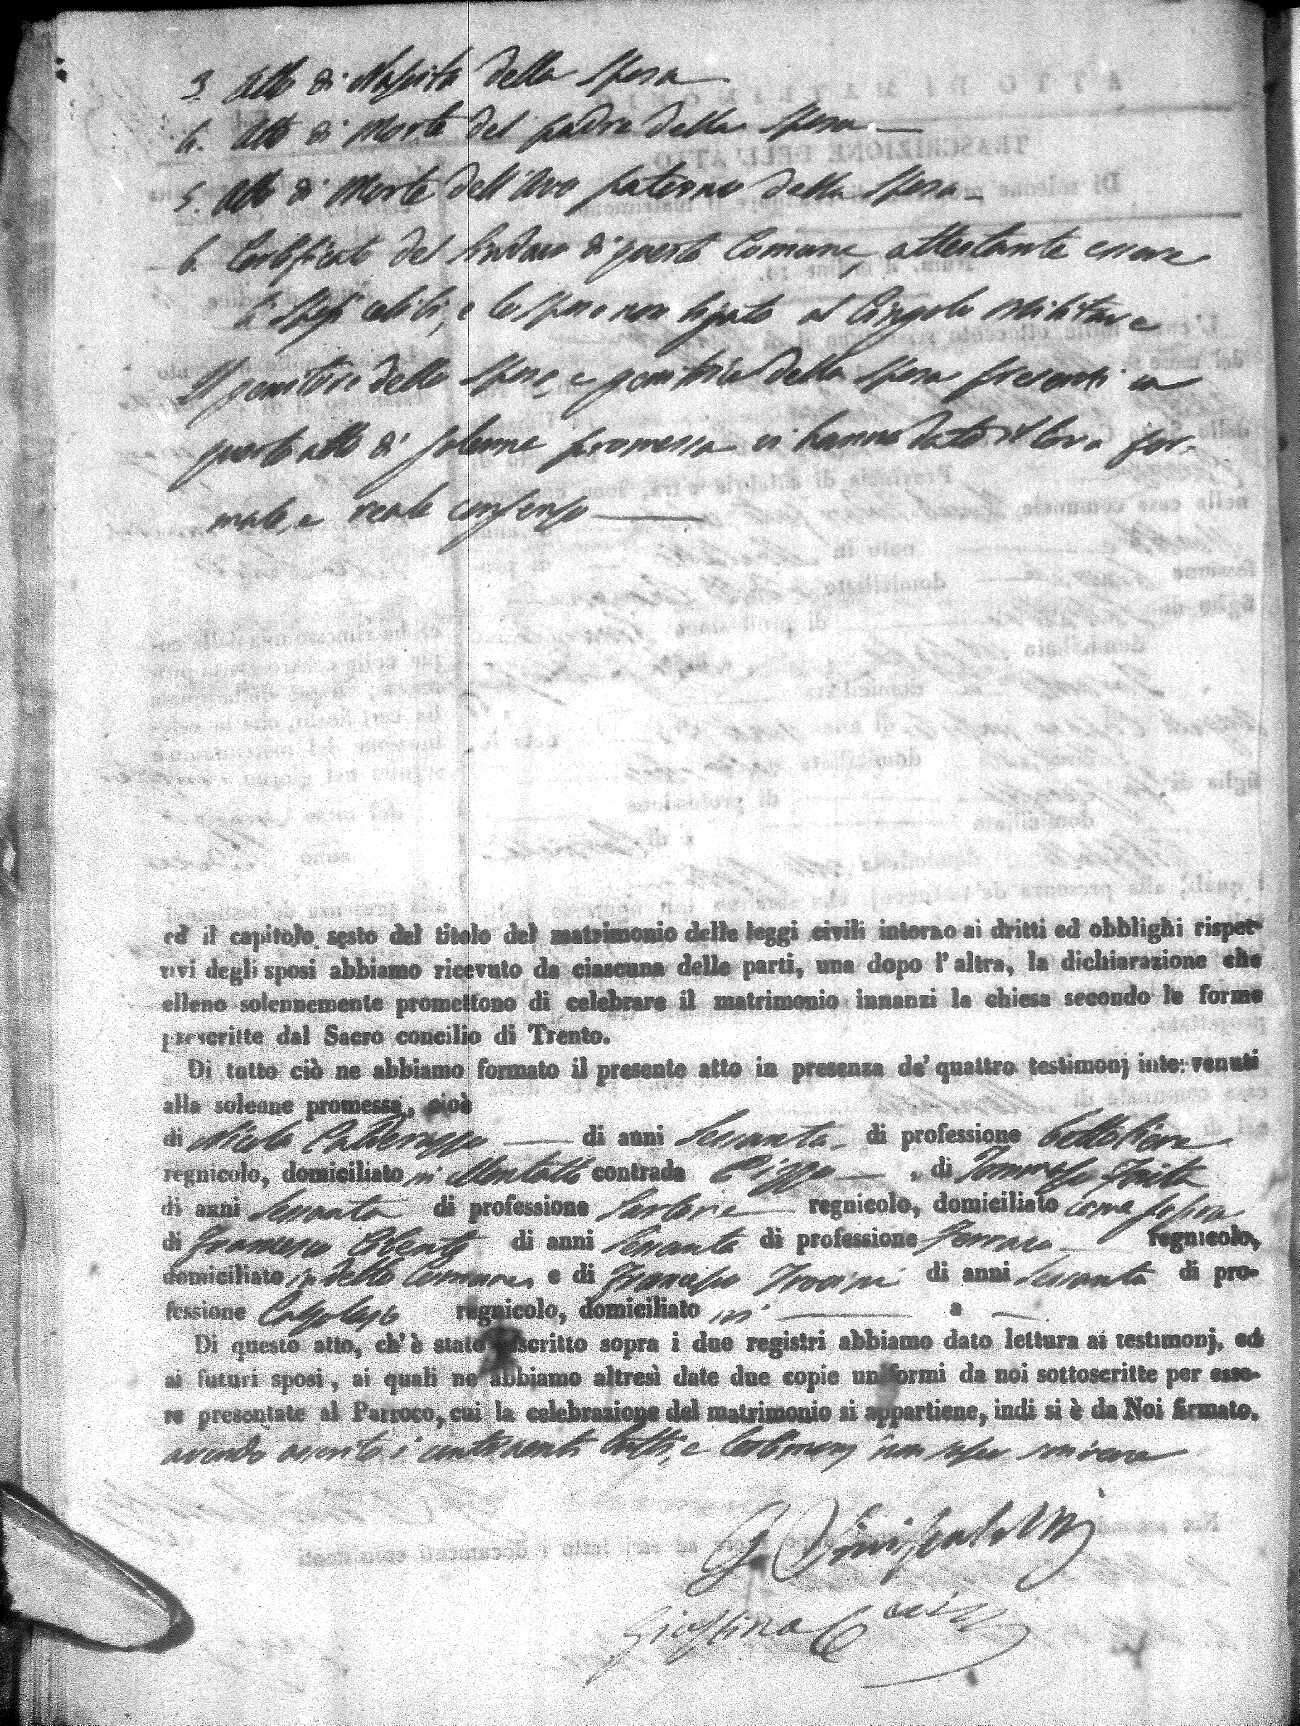 3. Atto di Nascita della Sposa
4. Atto di Morte del padre della Sposa
5. Atto di Morte dell'Avo paterno della Sposa
6. Certificato del Sindaco di questo Comune attestante essere
li Sposi celibi, e lo Sposo non legato al Cingolo militare
Il genitore dello Sposo, e genitrice della Sposa presenti a
questo atto di solenne promessa vi hanno dato il loro for-
male, e reale consenso
ed il capitolo sesto del titolo del matrimonio delle leggi civili intorno ai dritti ed obblighi rispet-
tivi degli sposi abbiamo ricevuto da ciascuna delle parti, una dopo l'altra, la dichiarazione che
elleno solennemente promettono di celebrare il matrimonio innanzi la chiesa secondo le forme
prescritte dal Sacro concilio di Trento.
Di tutto ciò ne abbiamo formato il presente atto in presenza de' quattro testimonj intervenuti
alla solenne promessa, cioè
di Nicola di anni Sessanta di professione
regnicolo, domiciliato in contrada Pizzo , di Tommaso
di anni Sessanta di professione regnicolo, domiciliato come sopra
di Francesco di anni Sessanta di professione Ferraro regnicolo,
domiciliato in detto Comune e di Francesco di anni Sessanta di pro-
fessione regnicolo, domiciliato ivi a
Di questo atto, ch'è stato inscritto sopra i due registri abbiamo dato lettura ai testimonj, ed
ai futuri sposi, ai quali ne abbiamo altresì date due copie uniformi da noi sottoscritte per esse-
re presentate al Parroco, cui la celebrazione del matrimonio si appartiene, indi si è da Noi firmato,
avendo asserito i contraenti tutti, e testimonj non saper scrivere